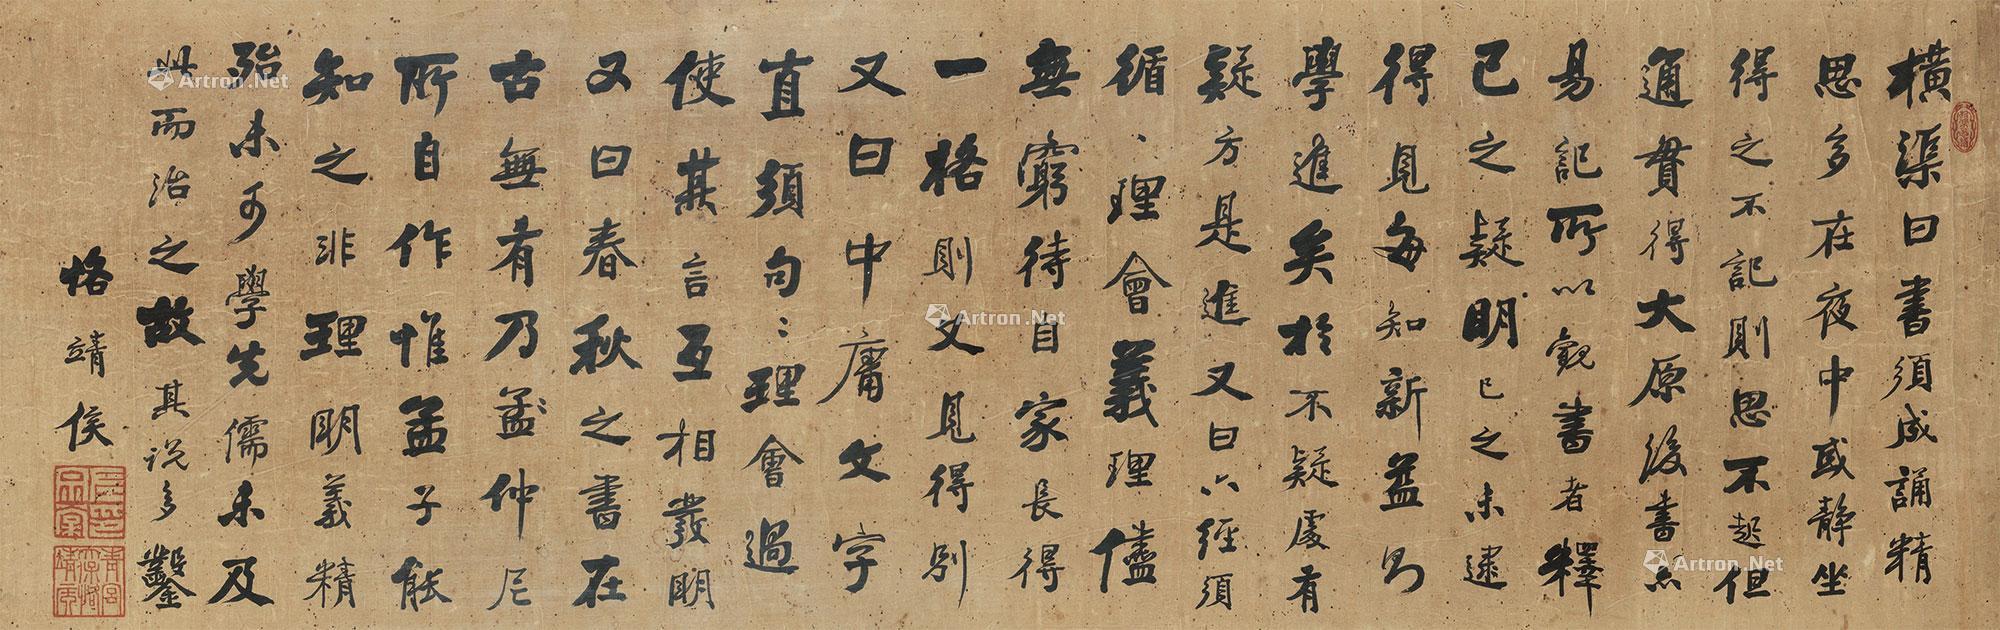 橫渠曰書須成誦精
思多在夜中或靜坐
得之不記則思不起但
通貫得大原後書亦
易記所以觀書者釋
己之疑明己之未達
得見每知新益則
學進矣於不疑處有
疑方是進又曰六經須
循〻理會義理儘
無窮待自家長得
一格則又見得別
又曰中庸文字
直須句〻理會過
使其言互相發明
又曰春秋之書在
古無有乃孟仲尼
所自作惟孟子能
知之非理明義精
殆未可學先儒未及
此而治之故其說多鑿
恪靖侯
Artron.Net
Artron.Net
Artron.Net
Artron.Net
Artron.Net
Artron.Net